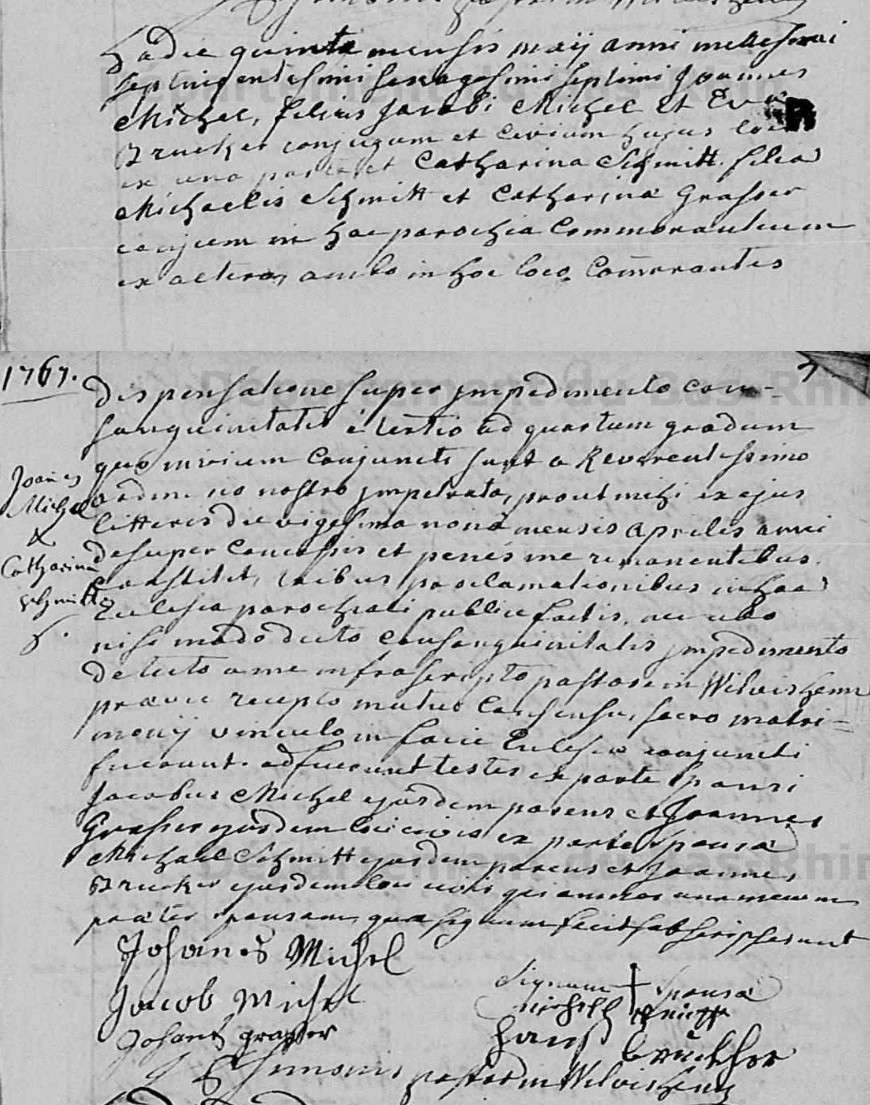 Hodie quinta mensis maÿ anni millesimi
septingentesimi sexagesimi septimi Joannes
Michel, filius Jacobi Michel et Eva
Brucker conjugum et civium hujus loci
ex una parte et Catharina Schmitt filia
Michaelis Schmitt et Catharina Grasser
conjugum in hac parochia Commorantium
ex altera, ambo in hoc loco Com̄orantes
1767.
7
dispensatione super jmpedimento con-
sanguinitatis è tertio ad quartum gradum
quo invicem Conjuncti sunt a Reverendissimo
ordinario nostro jmpetrata, prout mihi ex ejus
litteris die vigesima nona mensis aprilis anni
desuper Concessis et penès me remanentibus
Constitit, tribus proclamationibus in hac
Ecclesia parochiali publice factis, nec ullo
nisi modo dicto Consanguinitatis jmpedimento
detecto a me infrascripto pastore in Wilwisheim
prævie recepto mutuo Consensu, sacro matri-
monÿ vinculo in facie Ecclesiæ conjuncti
fuerunt. adfuerunt testes ex parte sponsi
Jacobus Michel ejusdem parens et Joannes
Grasser ejusdem loci civis ex parte sponsa
Michael Schmitt ejusdem parens et Joannes
Brucker ejusdem loci civis qui omnes una mecum
præter sponsam, quæ signum fecit subscripserunt
Joanes
Michel
&
Catharina
Schmitt
Johanes Michel
Jacob Michel
Johans grasser
Signum + Sponsa
michel schmitt
hans bruckher
Simonis pastor in Wilwisheim